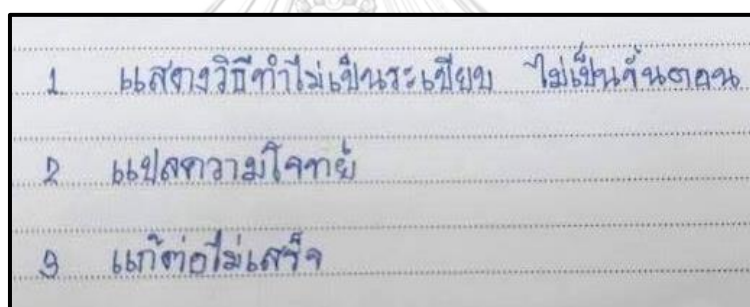 1. แสดงวิธีทำไม่เป็นระเบียบ ไม่เป็นขั้นตอน
2 แปลความโจทย์
3 แก้ต่อไม่เสร็จ